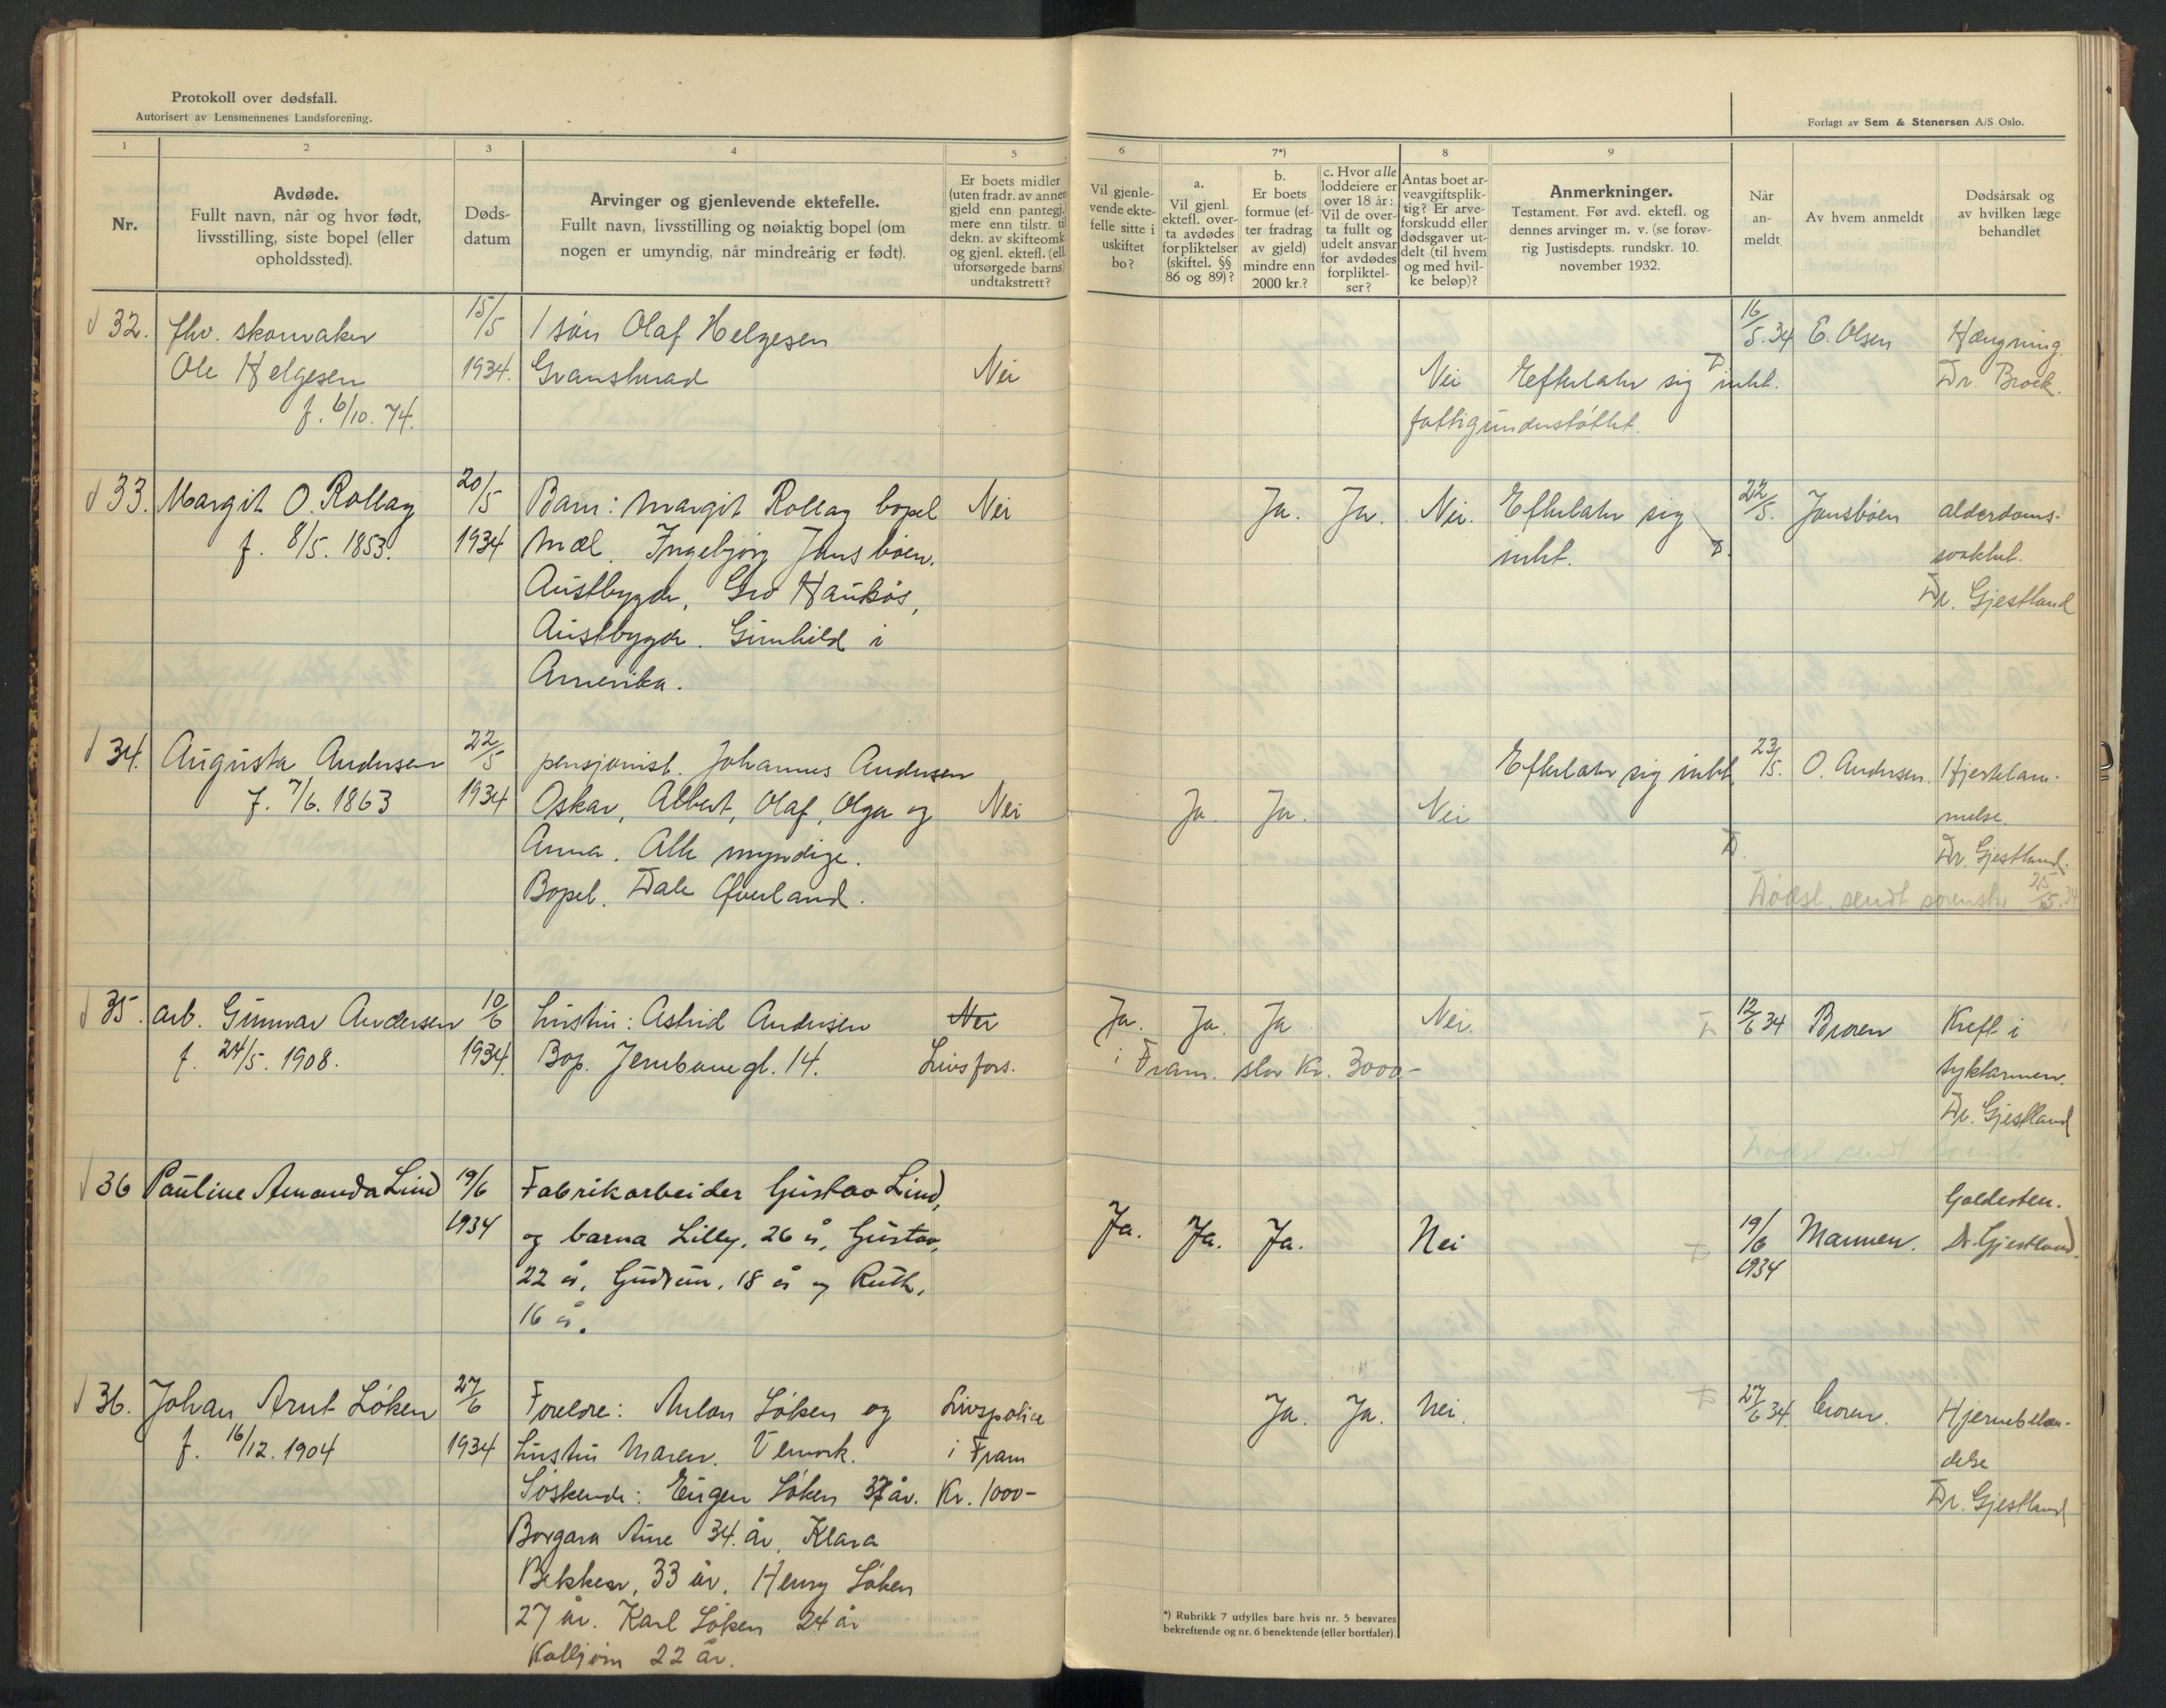 Protokoll over dødsfall.
Autorisert av Lensmennenes Landsforening.
Forlagt av Sem & Stenersen A/S Oslo.
1
2
3
4
5
6
7*)
8
9
Nr.
Avdøde.
Fullt navn, når og hvor født,
livsstilling, siste bopel (eller
opholdssted).
Døds-
datum
Arvinger og gjenlevende ektefelle.
Fullt navn, livsstilling og nøiaktig bopel (om
nogen er umyndig, når mindreårig er født).
Er boets midler
(uten fradr. av annen
gjeld enn pantegj.
mere enn tilstr. til
dekn. av skifteomk.
og gjenl. ektefl. (ell.
uforsørgede barns)
undtakstrett?
Vil gjenle-
vende ekte-
felle sitte i
uskiftet
bo?
a.
Vil gjenl.
ektefl. over-
ta avdødes
forpliktelser
(skiftel. §§
86 og 89)?
b.
Er boets
formue (ef-
ter fradrag
av gjeld)
mindre enn
2000 kr.?
c. Hvor alle
loddeiere er
over 18 år:
Vil de over-
ta fullt og
udelt ansvar
for avdødes
forpliktel-
ser?
Antas boet ar-
veavgiftsplik-
tig? Er arve-
forskudd eller
dødsgaver ut-
delt (til hvem
og med hvil-
ke beløp)?
Anmerkninger.
Testament. Før avd. ektefl. og
dennes arvinger m. v. (se forøv-
rig Justisdepts. rundskr. 10.
november 1932.
Når
an-
meldt
Av hvem anmeldt
Dødsårsak og
av hvilken læge
behandlet
32. fhv. skomaker 15/5 1 søn Olaf Helgesen 16/5.34 E. Olsen Hængning.
Ole Helgesen 1934. Gransherad Nei Nei Efterlater sig intet. Dr. Brock.
f. 6/10. 74. fattigunderstøttet.
33. Margit O. Rollag 20/5 Barn: Margit Rollag bopel Nei Ja. Ja. Nei. Efterlater sig 22/5. Jonsbøen alderdoms-
f. 8/5. 1853. 1934 Mæl. Ingebjørg Jonsbøen. intet. svakhet.
Austbygde, Gro Haukås, Dr. Gjestland
Austbygde. Gunhild i
Amerika.
34. Augusta Andersen 22/5 pensjonist. Johannes Andersen Efterlater sig intet 23/5. O. Andersen. Hjertelam-
f. 7/6. 1863 1934 Oskar, Albert, Olaf, Olga og Nei Ja. Ja. Nei melse.
Anna. Alle myndige. Dr. Gjestland.
Bopel. Dale Øverland. Dødsf. sendt sorenskr. 25/5.34
35. arb. Gunnar Andersen 10/6 Hustru: Astrid Andersen Nei Ja. Ja. Ja Nei. 12/6 34 Broren Kreft i
f. 24/5. 1908. 1934. Bop. Jernbanegt. 14. Livsfors. i Fram. stor Kr. 3000.- tyktarmen.
Dr. Gjestland
Dødsf. sendt
36 Pauline Amanda Lind 19/6 Fabrikarbeider Gustav Lind, Galdesten.
1934 og barna Lilly, 26 å, Gustav, Ja. Ja. Ja. Nei 19/6 Mannen. Dr. Gjestland.
22 å, Gudrun, 18 å og Ruth, 1934
16 å.
36. Johan Arnt Løken 27/6 Foreldre: Anton Løken og Livspolice Ja. Ja. Nei. 27/6 34. broren. Hjernebetæn-
f. 16/12. 1904 1934 hustru Maren. Vemork. i Fram delse
Søskende: Eugen Løken 37 år. Kr. 1000- Dr. Gjestland
Borgara Aure 34. år, Klara
Bekken, 33 år, Henry Løken
27 år. Karl Løken 24 år
Kolbjørn 22 år.
*) Rubrikk 7 utfylles bare hvis nr. 5 besvares
bekreftende og nr. 6 benektende (eller bortfaler).